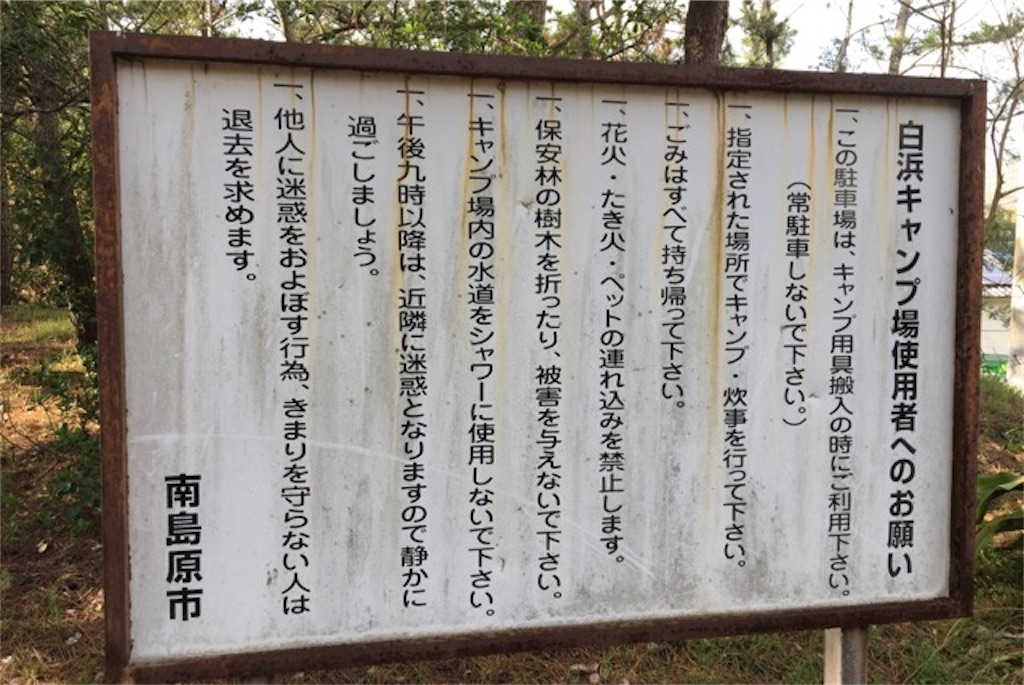 白浜キャンプ場使用者へのお願い
一、この駐車場は、キャンプ用具搬入の時にご利用下さい。
(常駐車しないで下さい。)
一、指定された場所でキャンプ・炊事を行って下さい。
一、ごみはすべて持ち帰って下さい。
一、花火・たき火・ペットの連れ込みを禁止します。
一、保安林の樹木を折ったり、被害を与えないで下さい。
一、キャンプ場内の水道をシャワーに使用しないで下さい。
一、午後九時以降は、近隣に迷惑となりますので静かに
過ごしましょう。
一、他人に迷惑をおよぼす行為、きまりを守らない人は
退去を求めます。
南島原市